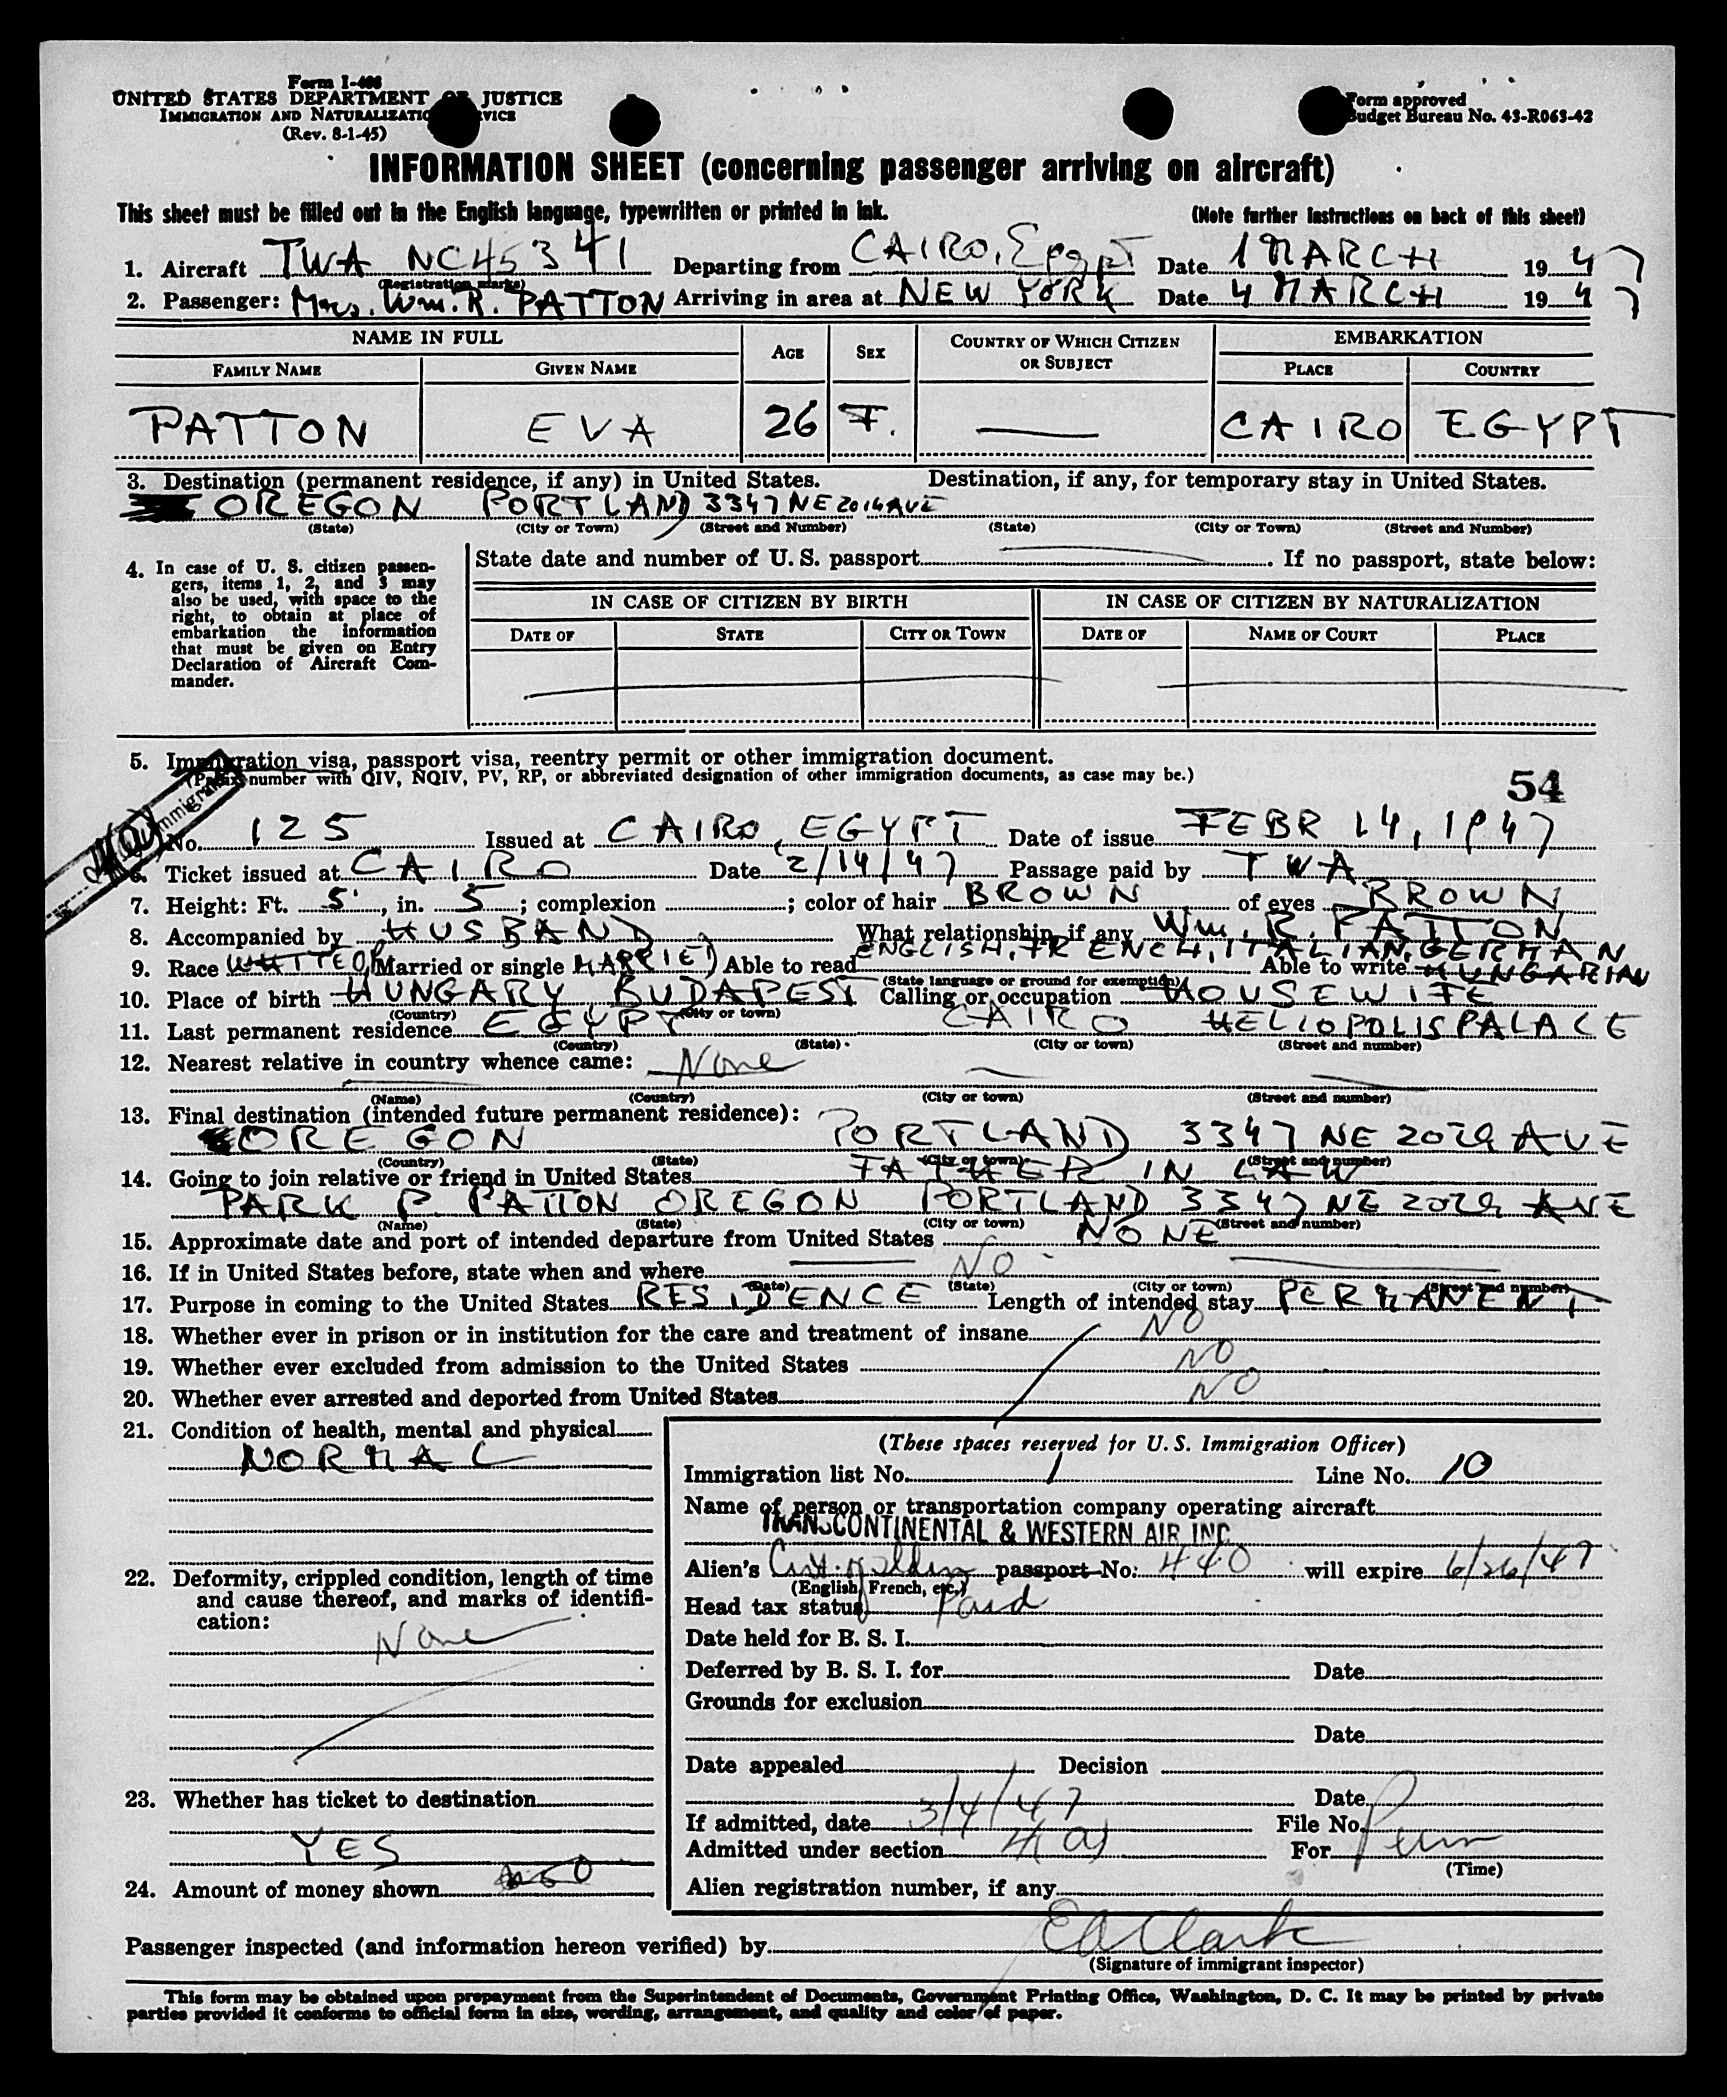 Form I-466
UNITED STATES DEPARTMENT OF JUSTICE
IMMIGRATION AND NATURALIZATION SERVICE
(Rev. 8-1-45)
Form approved
Budget Bureau No. 43-R063-42
INFORMATION SHEET (concerning passenger arriving on aircraft)
This sheet must be filled out in the English language, typewritten or printed in ink. (Note further instructions on back of this sheet)
1. Aircraft TWA NC45341 Departing from CAIRO, Egypt Date 1 MARCH 1947
(Registration marks)
2. Passenger: Mrs. Wm. R. PATTON Arriving in area at NEW YORK Date 4 MARCH 1947
NAME IN FULL AGE SEX COUNTRY OF WHICH CITIZEN OR SUBJECT EMBARKATION
FAMILY NAME GIVEN NAME PLACE COUNTRY
PATTON EVA 26 F. — CAIRO EGYPT
3. Destination (permanent residence, if any) in United States. Destination, if any, for temporary stay in United States.
OREGON PORTLAND 3347 NE AVE
(State) (City or Town) (Street and Number) (State) (City or Town) (Street and Number)
4. In case of U. S. citizen passengers, items 1, 2, and 3 may also be used, with space to the right, to obtain at place of embarkation the information that must be given on Entry Declaration of Aircraft Commander.
State date and number of U. S. passport. If no passport, state below:
IN CASE OF CITIZEN BY BIRTH IN CASE OF CITIZEN BY NATURALIZATION
DATE OF STATE CITY OR TOWN DATE OF NAME OF COURT PLACE
5. Immigration visa, passport visa, reentry permit or other immigration document.
(Prefix number with QIV, NQIV, PV, RP, or abbreviated designation of other immigration documents, as case may be.)
54
Immigration
No. 125 Issued at CAIRO, EGYPT Date of issue FEBR 14, 1947
6. Ticket issued at CAIRO Date 2/14/47 Passage paid by TWA
7. Height: Ft. 5', in. 5; complexion ; color of hair BROWN of eyes BROWN
8. Accompanied by HUSBAND What relationship, if any Wm. R. PATTON
9. Race WHITE Married or single MARRIED Able to read ENGLISH, FRENCH, ITALIAN, GERMAN Able to write HUNGARIAN
(State language or ground for exemption)
10. Place of birth HUNGARY BUDAPEST Calling or occupation HOUSEWIFE
(Country) (City or town)
11. Last permanent residence EGYPT CAIRO HELIOPOLIS PALACE
(Country) (State) (City or town) (Street and number)
12. Nearest relative in country whence came: None
(Name) (Country) (City or town) (Street and number)
13. Final destination (intended future permanent residence):
OREGON PORTLAND 3347 NE AVE
(Country) (State) (City or town) (Street and number)
14. Going to join relative or friend in United States FATHER IN LAW
PARK P. PATTON OREGON PORTLAND 3347 NE AVE
(Name) (State) (City or town) (Street and number)
15. Approximate date and port of intended departure from United States NONE
16. If in United States before, state when and where NO
(Date) (State) (City or town) (Street and number)
17. Purpose in coming to the United States RESIDENCE Length of intended stay PERMANENT
18. Whether ever in prison or in institution for the care and treatment of insane NO
19. Whether ever excluded from admission to the United States NO
20. Whether ever arrested and deported from United States NO
21. Condition of health, mental and physical
NORMAL
22. Deformity, crippled condition, length of time and cause thereof, and marks of identification:
None
23. Whether has ticket to destination
YES
24. Amount of money shown
(These spaces reserved for U. S. Immigration Officer)
Immigration list No. 1 Line No. 10
Name of person or transportation company operating aircraft
TRANSCONTINENTAL & WESTERN AIR INC.
Alien's passport No. 440 will expire 6/26/47
(English, French, etc.)
Head tax status Paid
Date held for B. S. I.
Deferred by B. S. I. for Date
Grounds for exclusion
Date
Date appealed Decision
Date
If admitted, date 3/4/47 File No.
Admitted under section 4(a) For Perm
(Time)
Alien registration number, if any
Passenger inspected (and information hereon verified) by EA Clark
(Signature of immigrant inspector)
This form may be obtained upon prepayment from the Superintendent of Documents, Government Printing Office, Washington, D. C. It may be printed by private
parties provided it conforms to official form in size, wording, arrangement, and quality and color of paper.